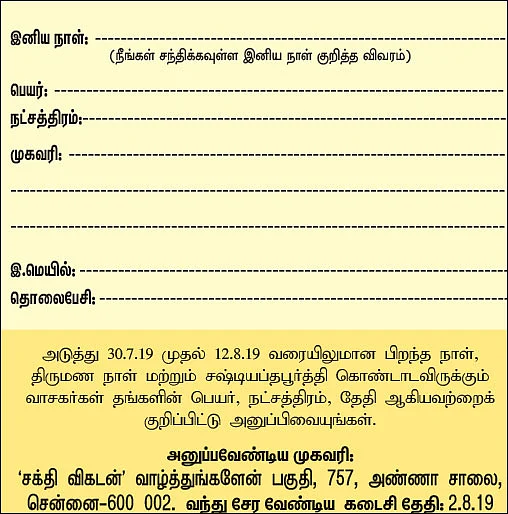 இனிய நாள்:
(நீங்கள் சந்திக்கவுள்ள இனிய நாள் குறித்த விவரம்)
பெயர்:
நட்சத்திரம்:
முகவரி:
இ.மெயில்:
தொலைபேசி:
அடுத்து 30.7.19 முதல் 12.8.19 வரையிலுமான பிறந்த நாள்,
திருமண நாள் மற்றும் சஷ்டியப்தபூர்த்தி கொண்டாடவிருக்கும்
வாசகர்கள் தங்களின் பெயர், நட்சத்திரம், தேதி ஆகியவற்றைக்
குறிப்பிட்டு அனுப்பிவையுங்கள்.
அனுப்பவேண்டிய முகவரி:
‘சக்தி விகடன்’ வாழ்த்துங்களேன் பகுதி, 757, அண்ணா சாலை,
சென்னை-600 002. வந்து சேர வேண்டிய கடைசி தேதி: 2.8.19